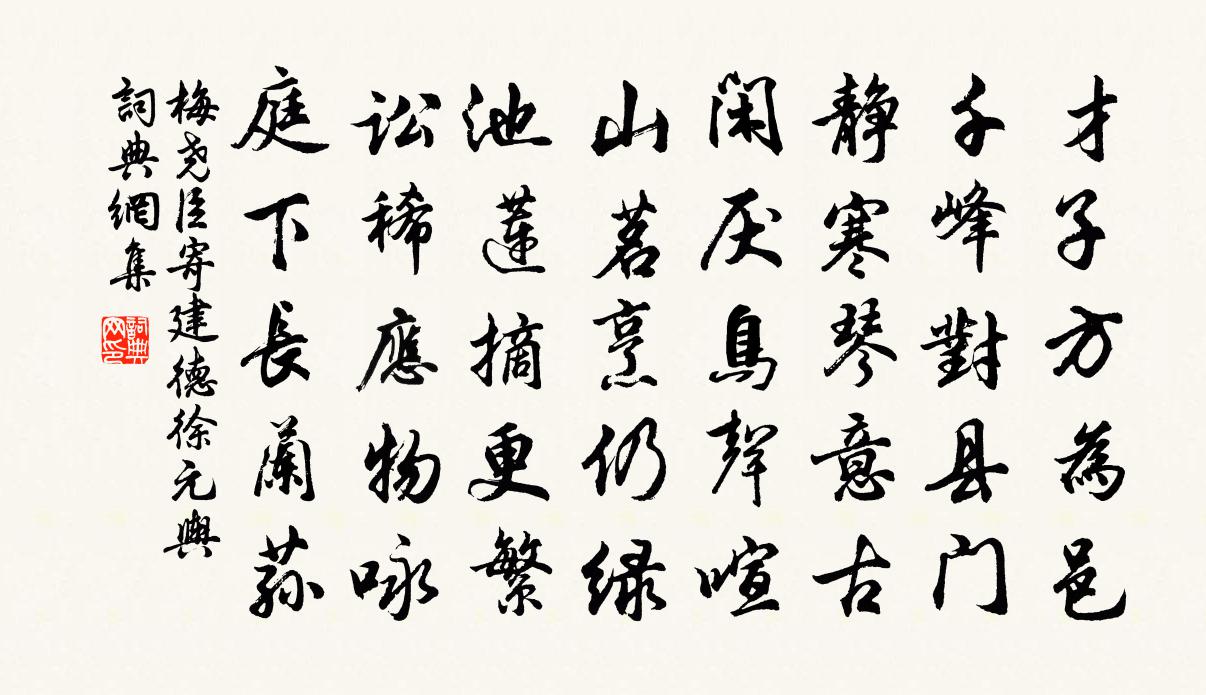 才子方為邑
千峰對县门
静寒琴意古
闲厌鳥聲喧
山茗烹仍绿
池蓮摘更繁
讼稀應物咏
庭下長蘭蓀
梅尧臣寄建德徐元輿
詞典網集
詞典网印